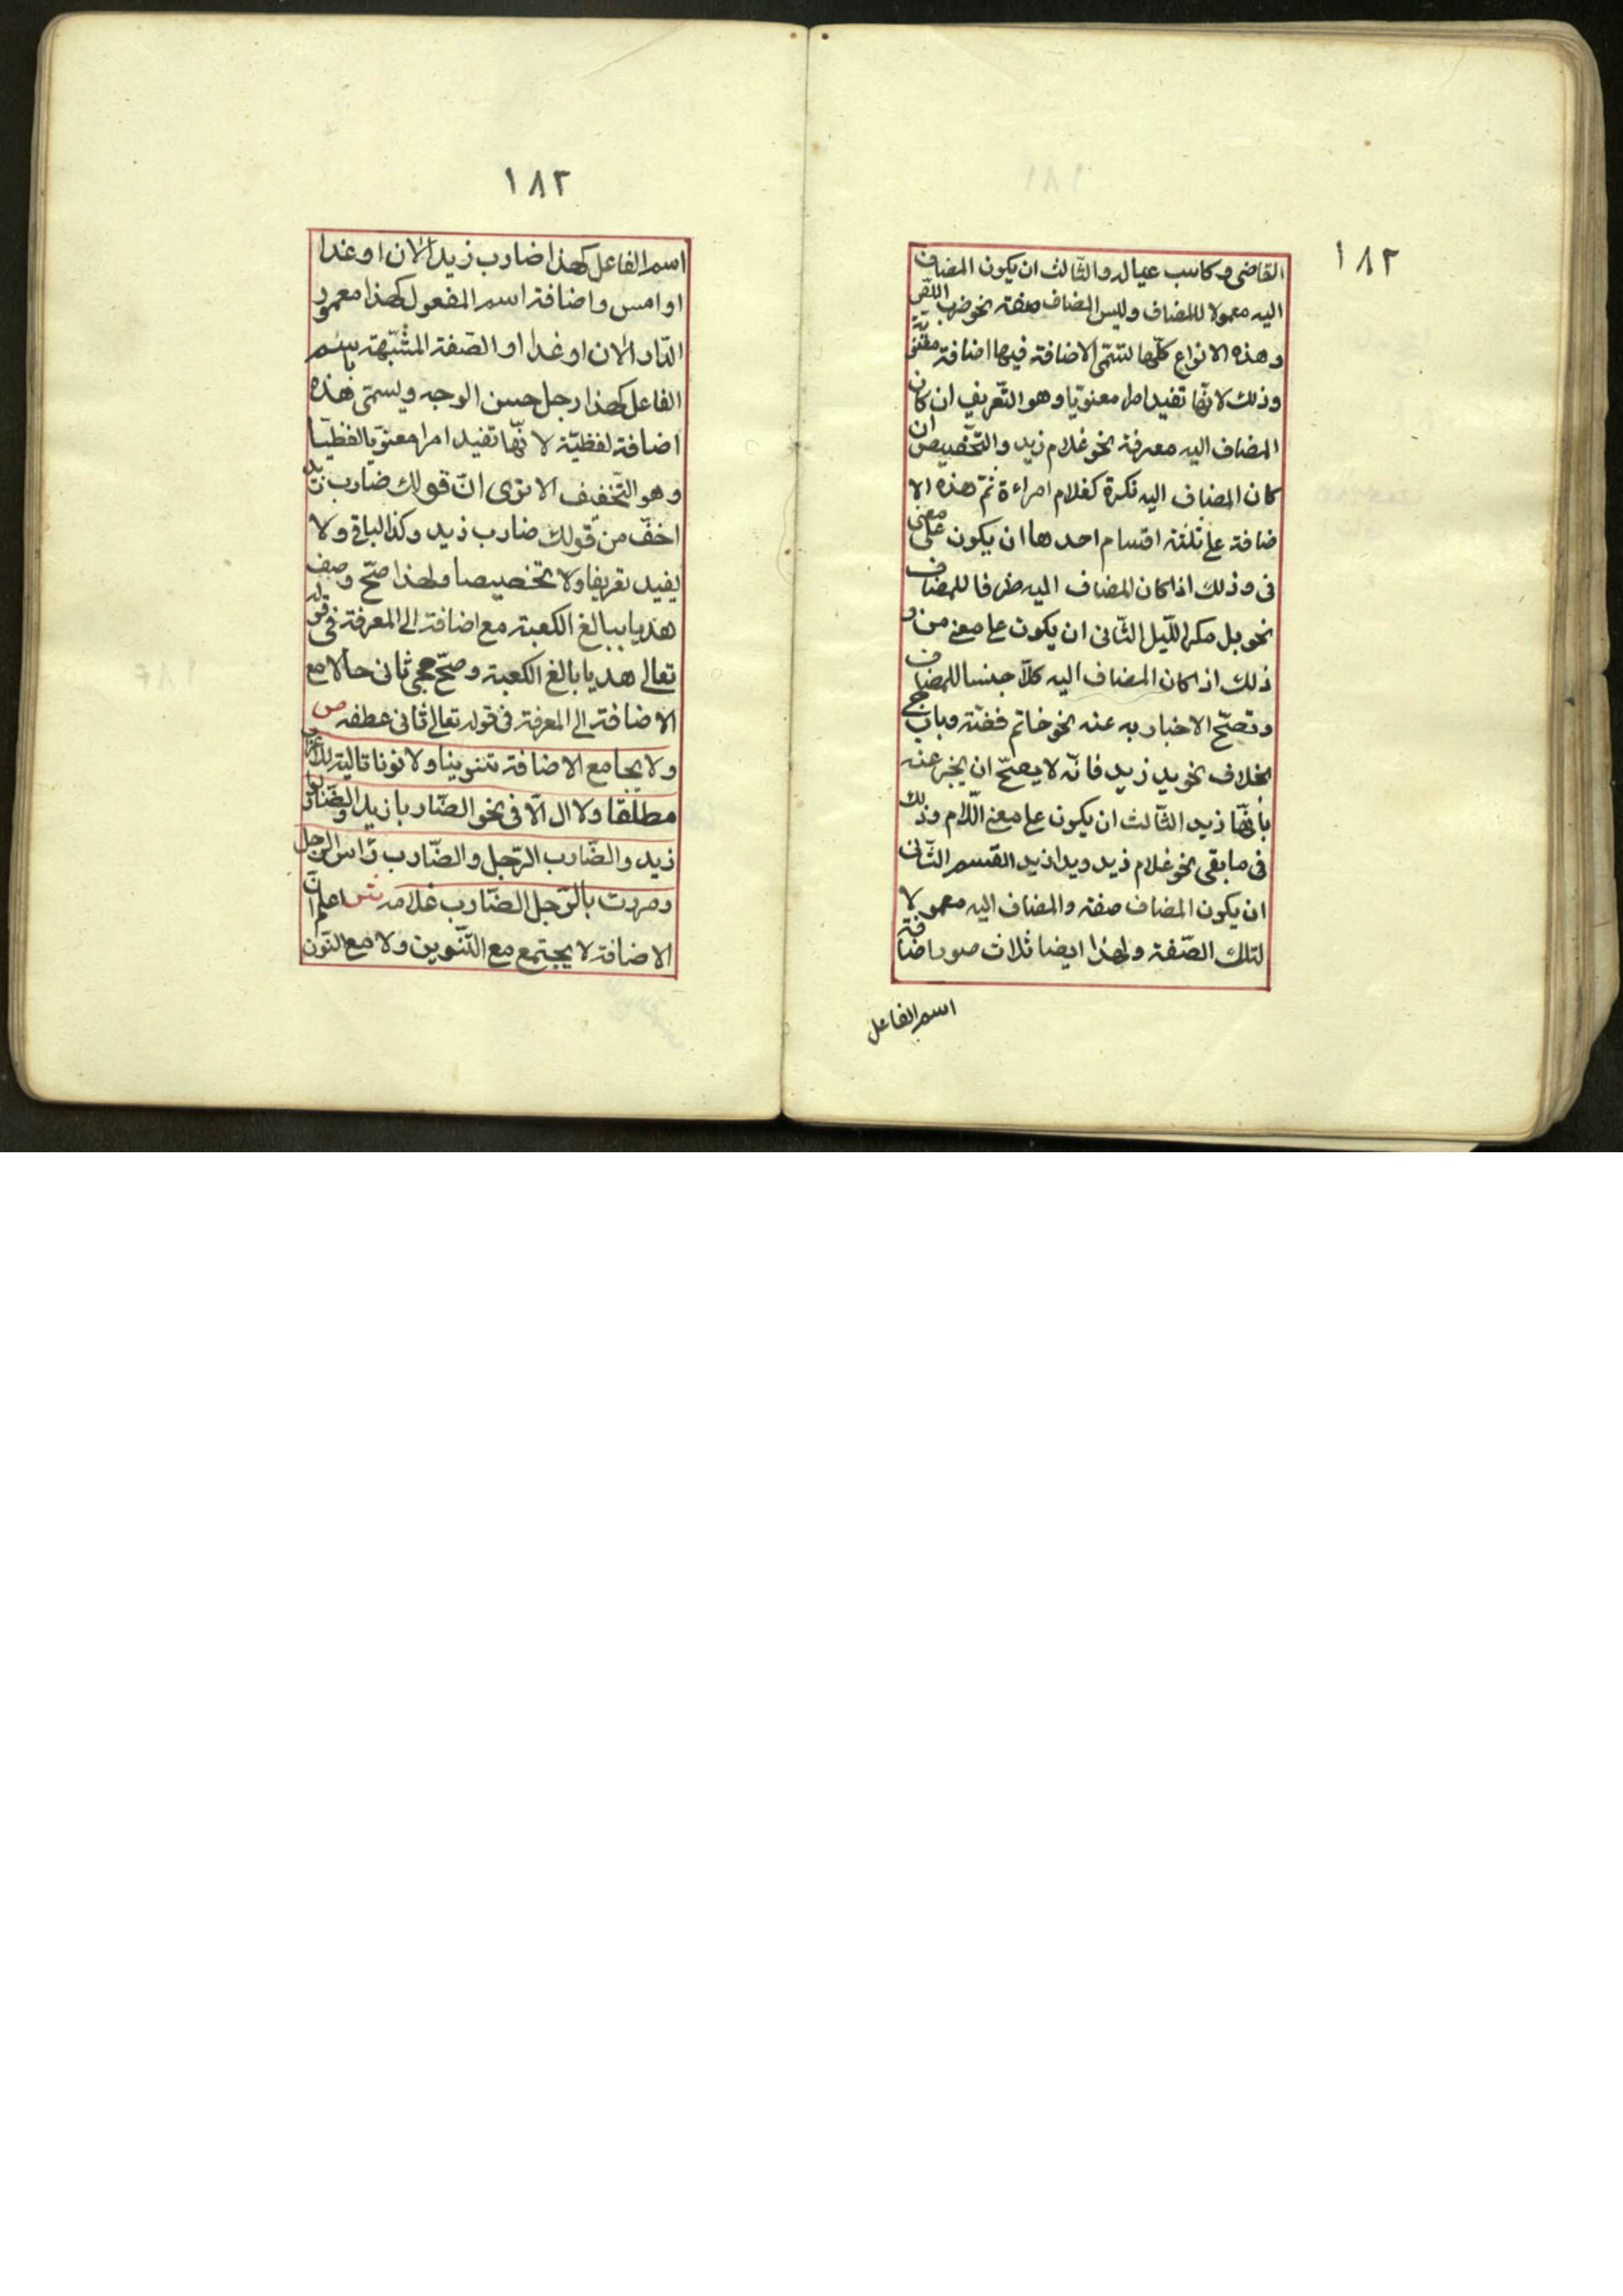 ١٨٢
القاضى وكاسب عياله والثّالث ان يكون المضاف
اليه معمولا للمضاف وليس المضاف صفة نحو ضرب اللّصّ
وهذه الانواع كلّها تسمّى الاضافة فيها اضافة معنويّة
وذلك لانّها تفيد امرا معنويّا وهو التّعريف ان كان
المضاف اليه معرفة نحو غلام زيد والتّخصيص ان
كان المضاف اليه نكرة كغلام امراءة ثمّ هذه الا
ضافة على ثلثة اقسام احدها ان يكون على معنى
فى وذلك اذا كان المضاف اليه ظرفا للمضاف
نحو بل مكر اللّيل الثّانى ان يكون على معنى من و
ذلك اذا كان المضاف اليه كلّا جنسا للمضاف
وتصحّ الاخبار به عنه نحو خاتم فضّة وباب
بخلاف نحو يد زيد فانّه لا يصحّ ان يخبر عنه
بأنّها زيد الثّالث ان يكون على معنى اللّام وذلك
فى ما بقى نحو غلام زيد ويد زيد القسم الثّانى
ان يكون المضاف صفة والمضاف اليه معمولا
لتلك الصّفة ولهذا ايضا ثلاث صور اضافة
اسم الفاعل
١٨٣
اسم الفاعل كهذا ضارب زيد الان او غدا
او امس واضافة اسم المفعول كهذا معمور
الدّار الان او غدا او الصّفة المشبّهة باسم
الفاعل كهذا رجل حسن الوجه ويسمّى هذه
اضافة لفظيّة لانّها تفيد امرا معنويّا لفظيّا
وهو التّخفيف الا ترى انّ قولك ضارب زيد
اخفّ من قولك ضارب زيد وكذا الباقى ولا
يفيد تعريفا ولا تخصيصا ولهذا صحّ وصف
هديا ببالغ الكعبة مع اضافته الى المعرفة فى قوله
تعالى هديا بالغ الكعبة وصحّ مجئ ثانى حالا مع
الاضافة الى المعرفة فى قوله تعالى ثانى عطفه ص
ولا يجامع الاضافة تنوينا ولا نونا تالية للاعراب
مطلقا ولا ال الّا فى نحو الضّاربا زيد والضّاربوا
زيد والضّارب الرّجل والضّارب رأس الرّجل
ومررت بالرّجل الضّارب غلامه ش اعلم انّ
الاضافة لا يجتمع مع التّنوين ولا مع النّون